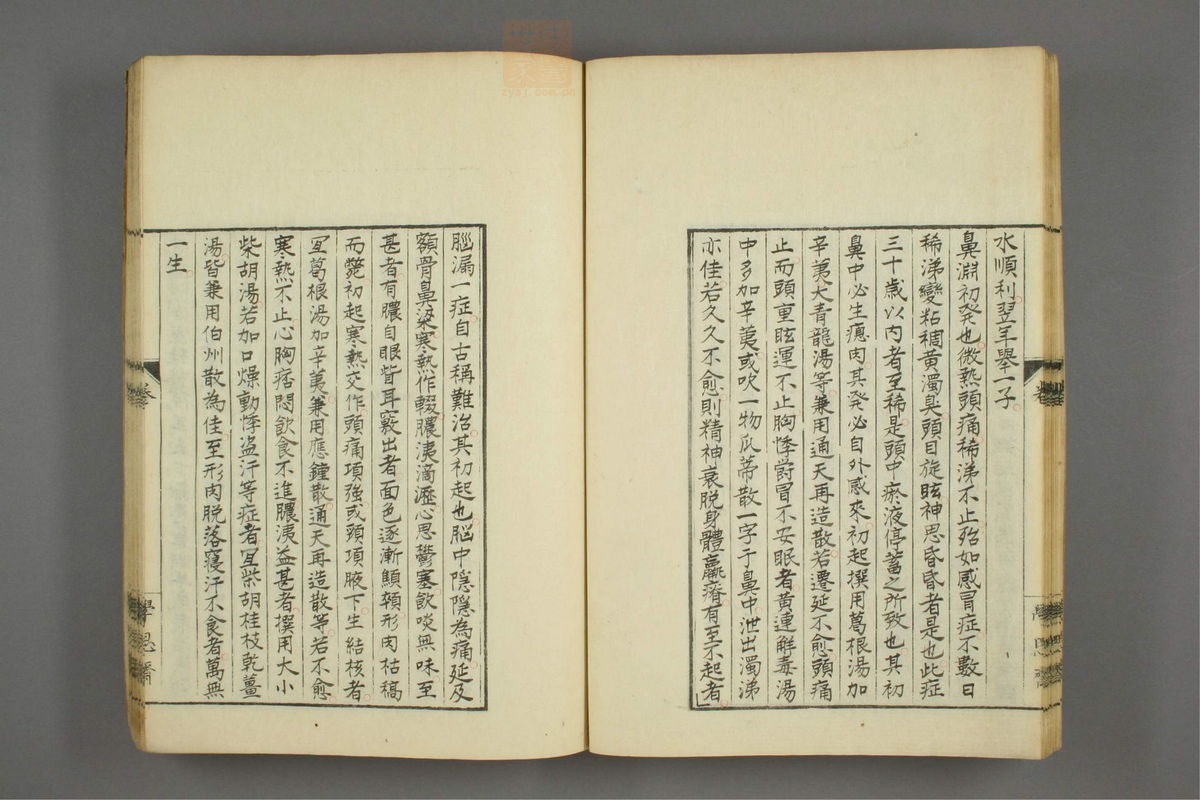 水順利翌年舉一子
鼻淵初発也微熱頭痛稀涕不止殆如感冒症不數日
稀涕變粘稠黄濁臭頭目旋眩神思昏昏者是也此症
三十歳以内者至稀是頭中瘀液停蓄之所致也其初
鼻中必生瘜肉其発必自外感來初起撰用葛根湯加
辛荑大青龍湯等兼用通天再造散若遷延不愈頭痛
止而頭重眩運不止胸悸欝冒不安眠者黄連解毒湯
中多加辛荑或吹一物瓜蒂散一字于鼻中泄出濁涕
亦佳若久久不愈則精神衰脱身體羸瘠有至不起者
腦漏一症自古稱難治其初起也脳中隱隱為痛延及
額骨鼻梁寒熱作輟膿洟滴瀝心思鬱塞飲啖無味至
甚者有膿自眼眥耳竅出者面色逐漸顦顇形肉枯槁
而斃初起寒熱交作頭痛項強或頸項腋下生結核者
冝葛根湯加辛荑兼用應鐘散通天再造散等若不愈
寒熱不止心胸痞悶飲食不進膿洟益甚者撰用大小
柴胡湯若加口燥動悸盗汗等症者冝柴胡桂枝乾薑
湯皆兼用伯州散為佳至形肉脱落寢汗不食者萬無
一生
學思齋